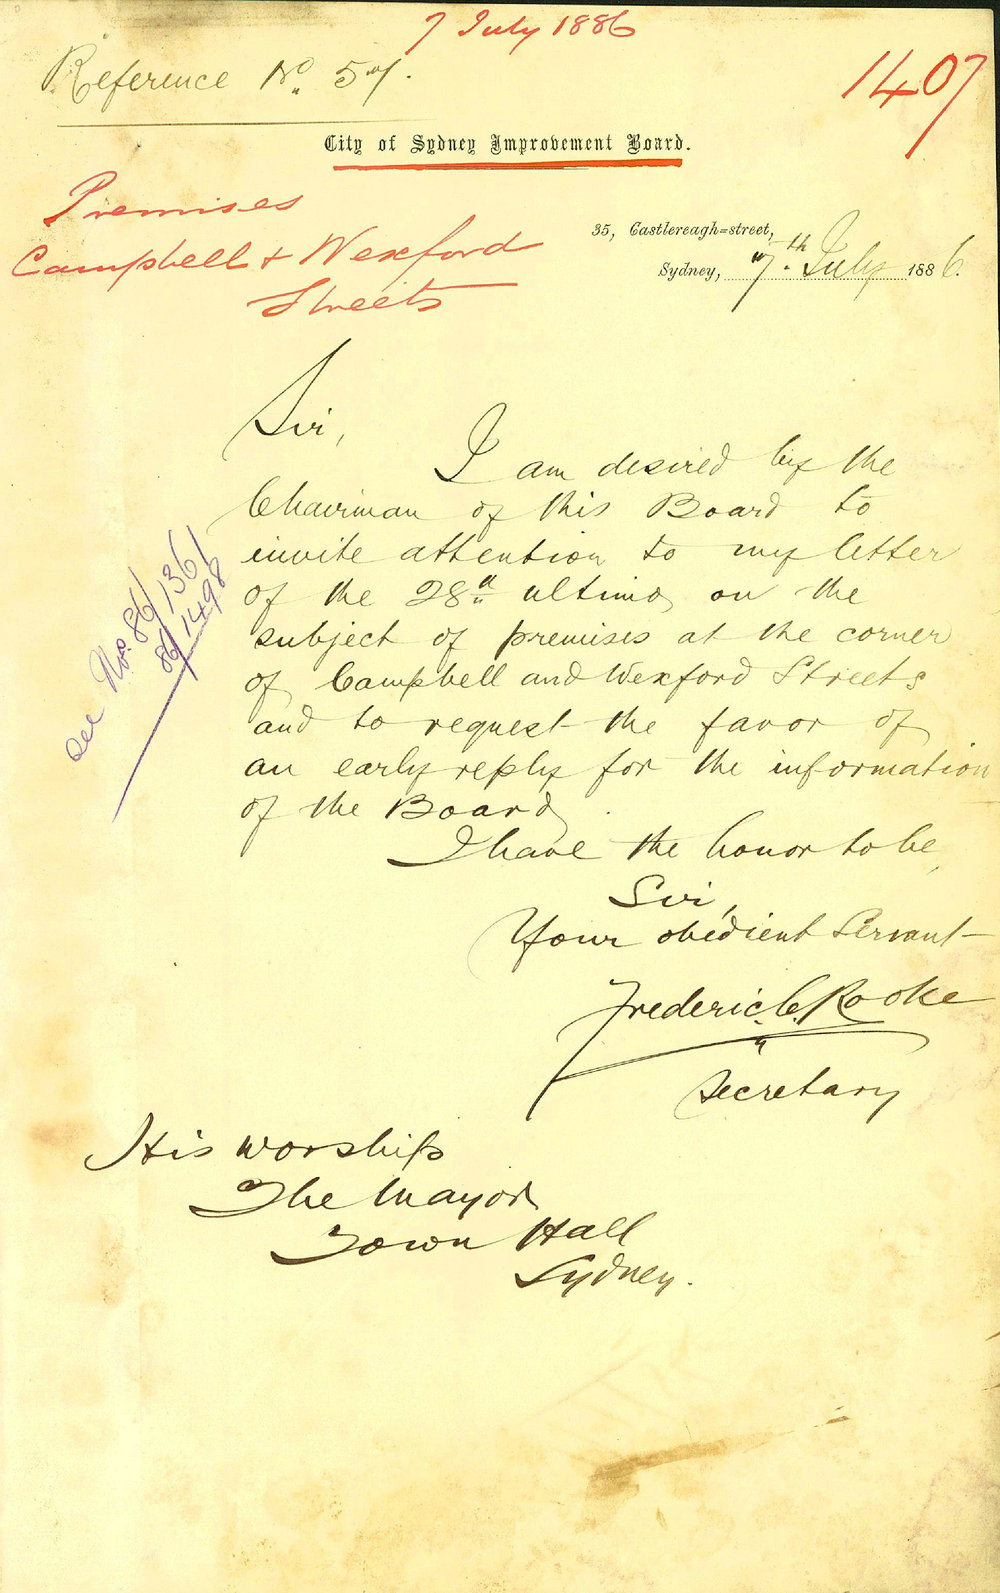 7 July 1886
Reference No. 57.
1407
City of Sydney Improvement Board.
Premises
Campbell & Wexford
Streets
35, Castlereagh=street,
Sydney, 7th. July 1886.
Sir,
I am desired by the
Chairman of this Board to
invite attention to my letter
of the 28th ultimo, on the
subject of premises at the corner
of Campbell and Wexford Streets
and to request the favor of
an early reply for the information
of the Board.
I have the honor to be,
Sir,
Your obedient Servant
Frederic C. Rooke
Secretary
see Nos. 86/1361
86/1498
His worship
The Mayor
Town Hall
Sydney.